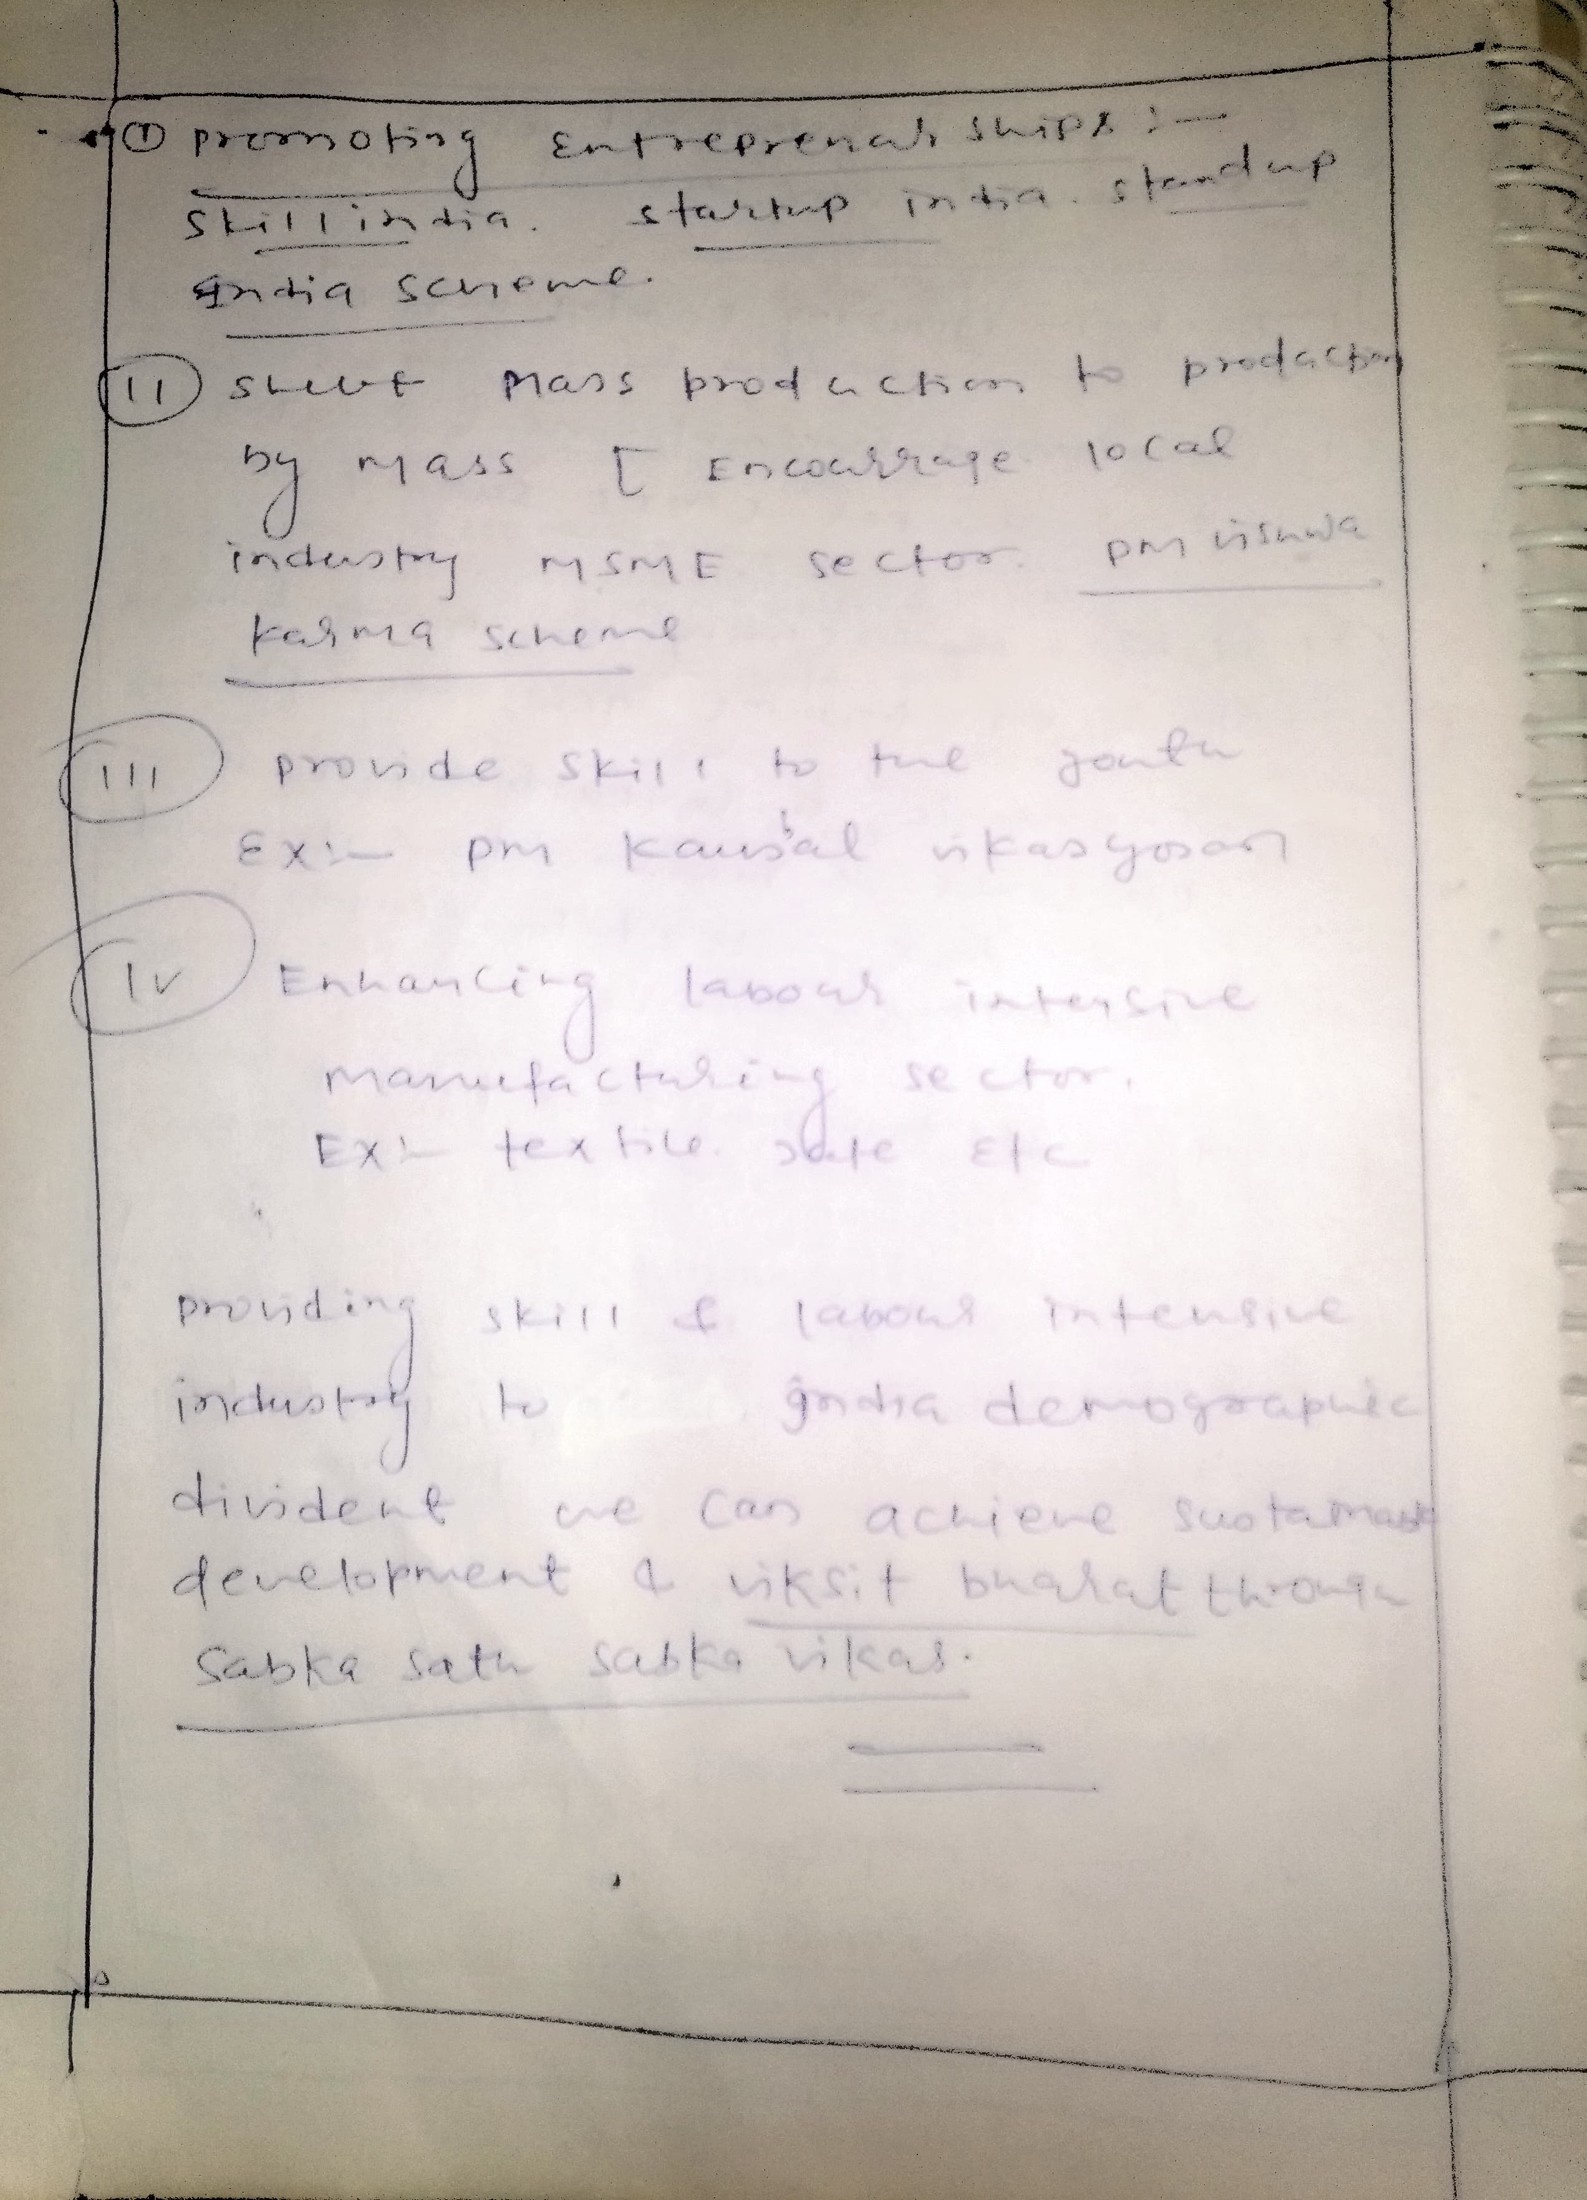 ① promoting Entreprenarships :-
skill india. startup india. standup
India scheme.
(II) Shift Mass production to production
by Mass [ Encourrage local
industry MSME sector. PM vishwa
karma scheme
(III) provide skill to the youth
Ex:- PM Kaushal vikas yojan
(IV) Enhancing labour intensive
manufacturing sector.
Ex:- textile. Jute Etc
providing skill & labour intensive
industry to India demographic
divident we can achieve sustainable
development & viksit bharat through
Sabka sath sabka vikas.